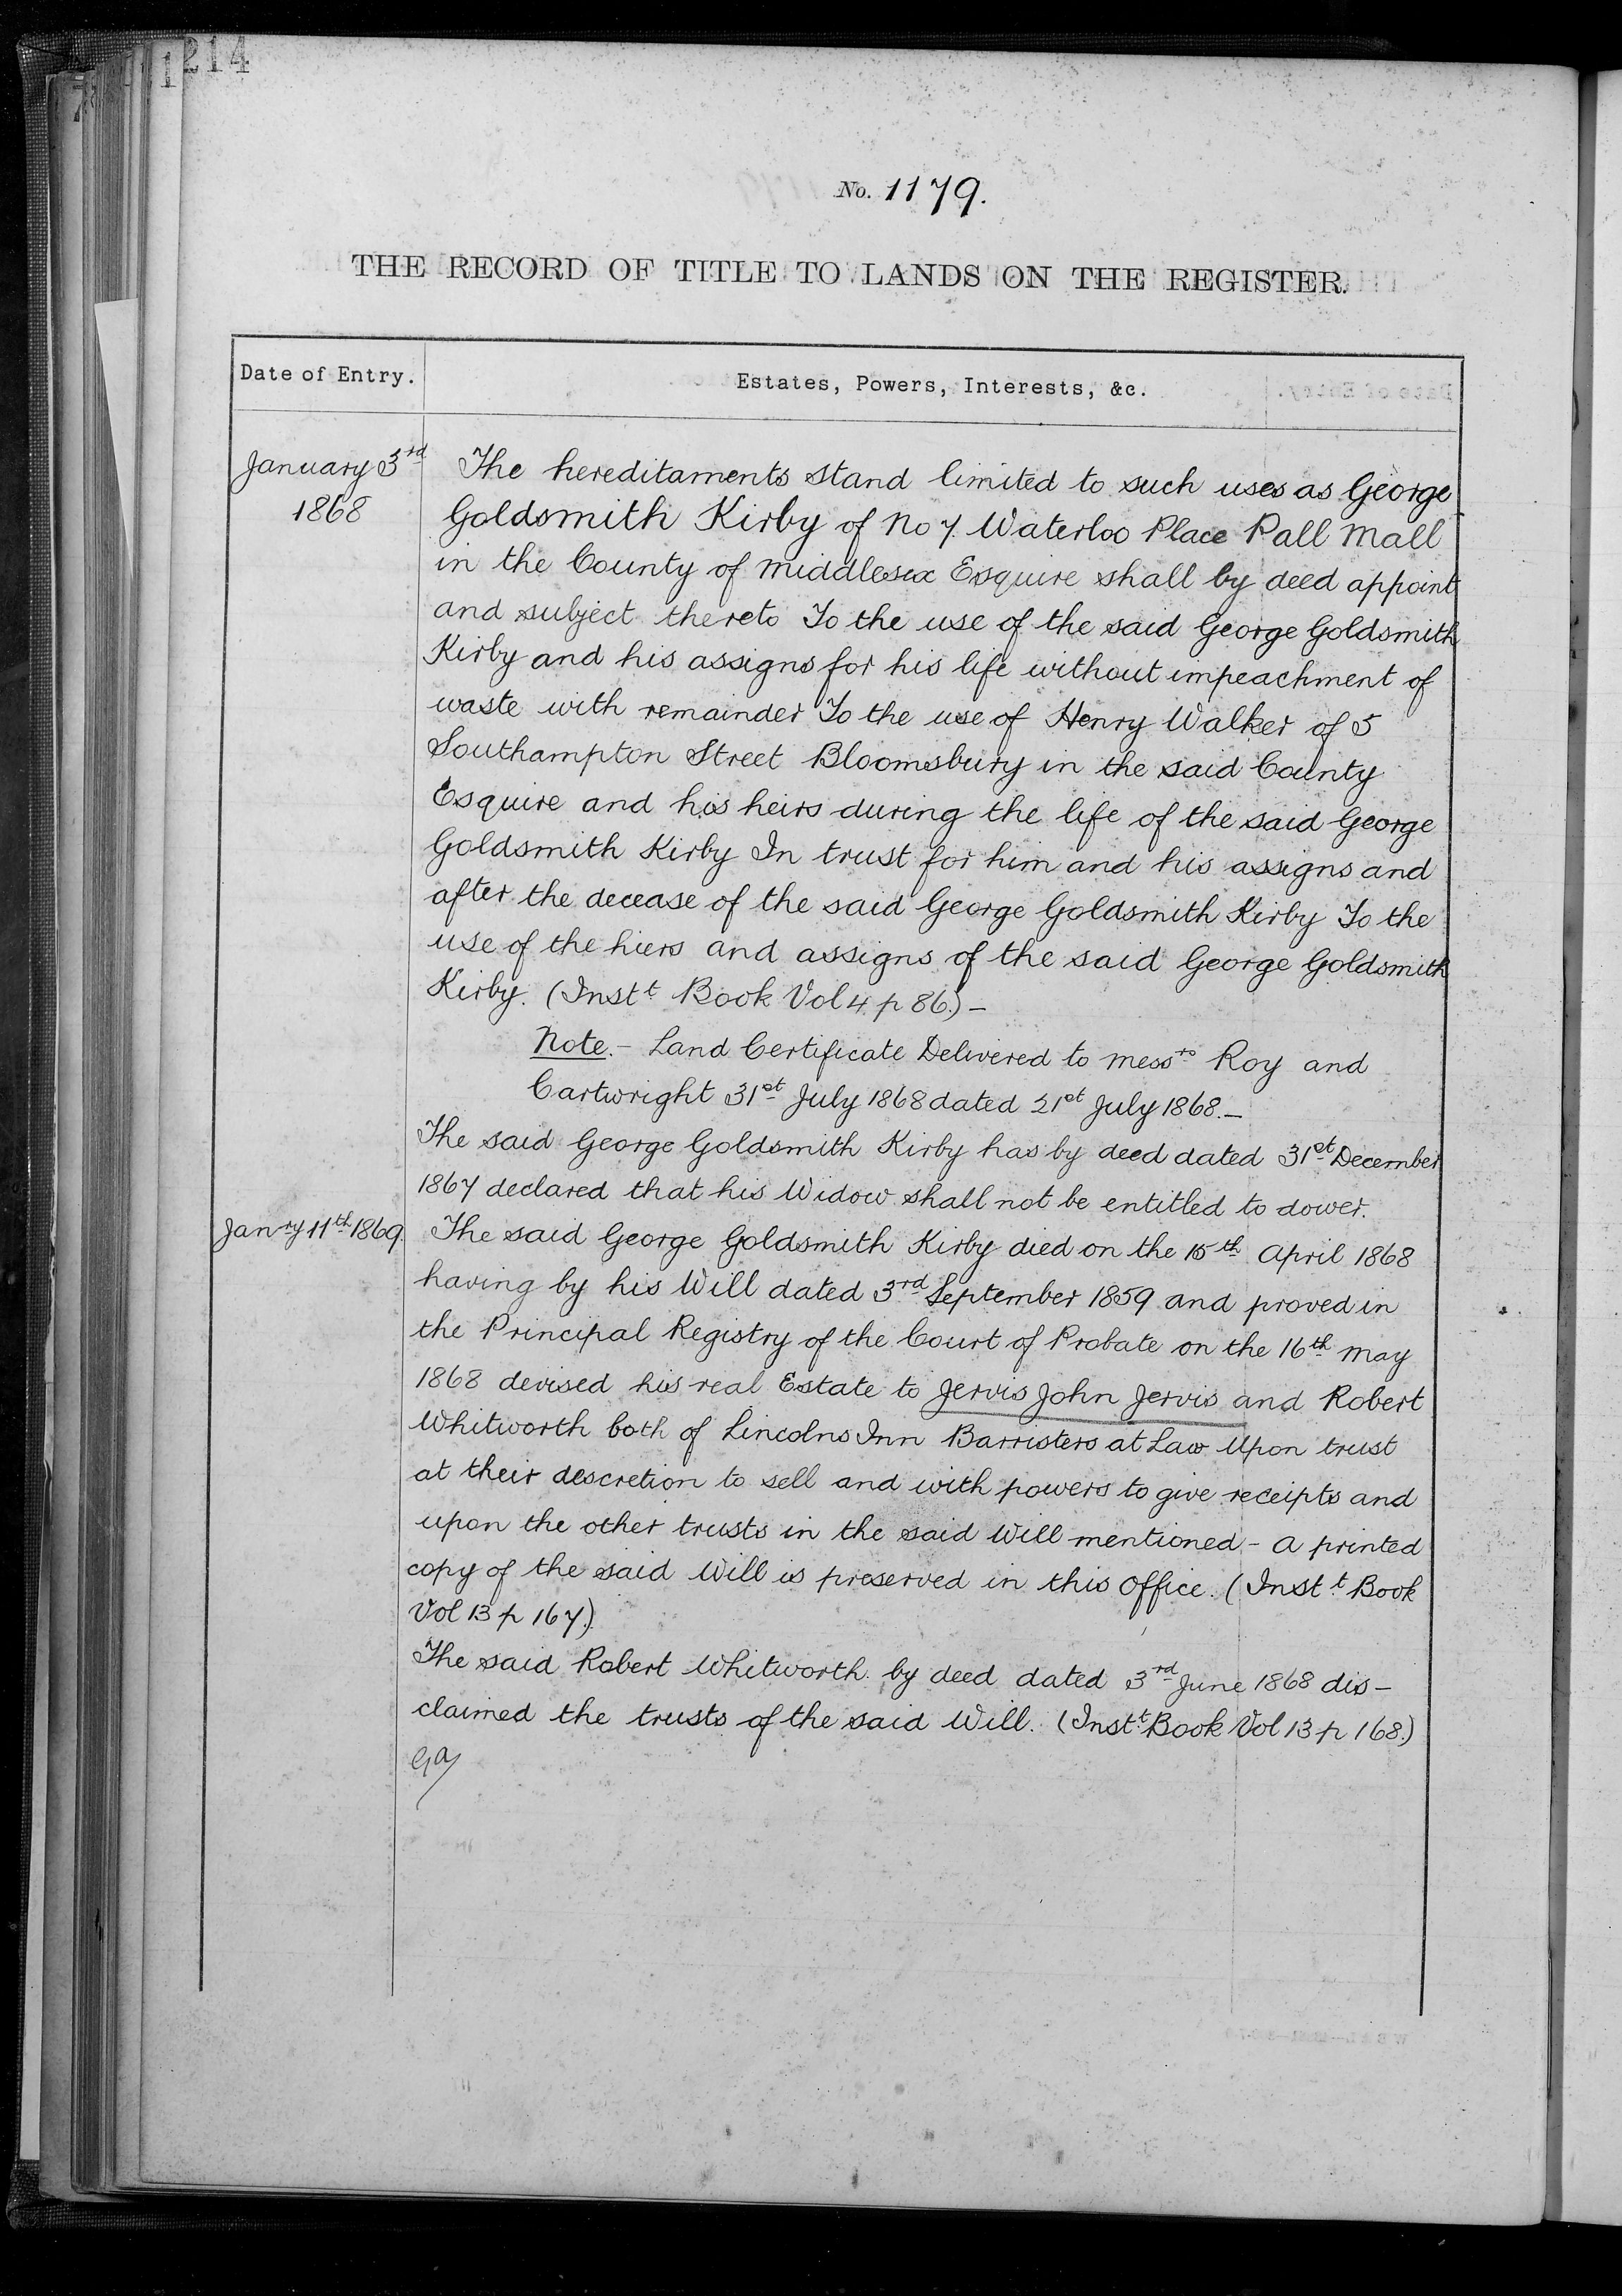 1214
No. 1179.
THE RECORD OF TITLE TO LANDS ON THE REGISTER.
Date of Entry.
Estates, Powers, Interests, &c.
January 3rd
1868
The hereditaments stand limited to such uses as George
Goldsmith Kirby of No 7. Waterloo Place Pall Mall
in the County of Middlesex Esquire shall by deed appoint
and subject thereto To the use of the said George Goldsmith
Kirby and his assigns for his life without impeachment of
waste with remainder To the use of Henry Walker of 5
Southampton Street Bloomsbury in the said County
Esquire and his heirs during the life of the said George
Goldsmith Kirby In trust for him and his assigns and
after the decease of the said George Goldsmith Kirby To the
use of the hiers and assigns of the said George Goldsmith
Kirby. (Instt Book Vol 4 p 86.) –
Note. – Land Certificate Delivered to Messrs Roy and
Cartwright 31st July 1868 dated 21st July 1868. –
The said George Goldsmith Kirby has by deed dated 31st December
1867 declared that his Widow shall not be entitled to dower.
Janry 11th 1869.
The said George Goldsmith Kirby died on the 15th April 1868
having by his Will dated 3rd September 1859 and proved in
the Principal Registry of the Court of Probate on the 16th May
1868 devised his real Estate to Jervis John Jervis and Robert
Whitworth both of Lincolns Inn Barristers at Law Upon trust
at their descretion to sell and with powers to give receipts and
upon the other trusts in the said Will mentioned – A printed
copy of the said Will is preserved in this Office. (Instt Book
Vol 13 p 167.)
The said Robert Whitworth by deed dated 3rd June 1868 dis–
claimed the trusts of the said Will. (Instt Book Vol 13 p 168.)